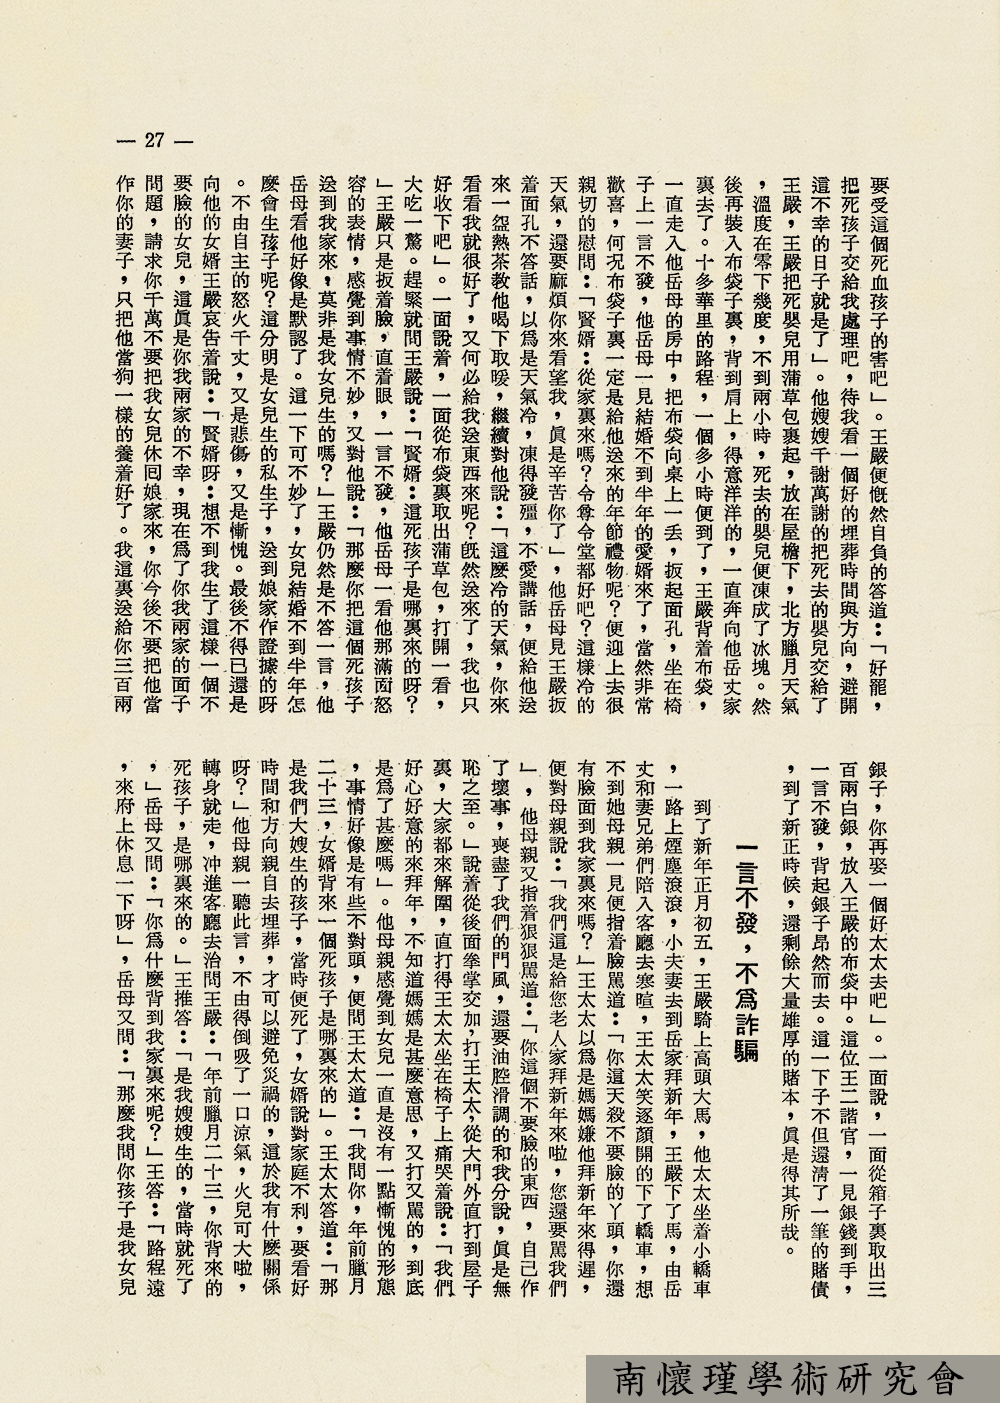 — 27 —
要受這個死血孩子的害吧」。王嚴便慨然自負的答道：「好罷，
把死孩子交給我處理吧，待我看一個好的埋葬時間與方向，避開
這不幸的日子就是了」。他嫂嫂千謝萬謝的把死去的嬰兒交給了
王嚴，王嚴把死嬰兒用蒲草包裹起，放在屋檐下，北方臘月天氣
，溫度在零下幾度，不到兩小時，死去的嬰兒便凍成了冰塊。然
後再裝入布袋子裏，背到肩上，得意洋洋的，一直奔向他岳丈家
裏去了。十多華里的路程，一個多小時便到了，王嚴背着布袋，
一直走入他岳母的房中，把布袋向桌上一丢，扳起面孔，坐在椅
子上一言不發，他岳母一見結婚不到半年的愛婿來了，當然非常
歡喜，何況布袋子裏一定是給他送來的年節禮物呢？便迎上去很
親切的慰問：「賢婿：從家裏來嗎？令尊令堂都好吧？這樣冷的
天氣，還要麻煩你來看望我，眞是辛苦你了」，他岳母見王嚴扳
着面孔不答話，以爲是天氣冷，凍得發殭，不愛講話，便給他送
來一盌熱茶教他喝下取暖，繼續對他說：「這麼冷的天氣，你來
看看我就很好了，又何必給我送東西來呢？旣然送來了，我也只
好收下吧」。一面說着，一面從布袋裏取出蒲草包，打開一看，
大吃一驚。趕緊就問王嚴說：「賢婿：這死孩子是哪裏來的呀？
」王嚴只是扳着臉，直着眼，一言不發，他岳母一看他那滿面怒
容的表情，感覺到事情不妙，又對他說：「那麼你把這個死孩子
送到我家來，莫非是我女兒生的嗎？」王嚴仍然是不答一言，他
岳母看他好像是默認了。這一下可不妙了，女兒結婚不到半年怎
麼會生孩子呢？這分明是女兒生的私生子，送到娘家作證據的呀
。不由自主的怒火千丈，又是悲傷，又是慚愧。最後不得已還是
向他的女婿王嚴哀告着說：「賢婿呀：想不到我生了這樣一個不
要臉的女兒，這眞是你我兩家的不幸，現在爲了你我兩家的面子
問題，請求你千萬不要把我女兒休囘娘家來，你今後不要把他當
作你的妻子，只把他當狗一樣的養着好了。我這裏送給你三百兩
銀子，你再娶一個好太太去吧」。一面說，一面從箱子裏取出三
百兩白銀，放入王嚴的布袋中。這位王二諧官，一見銀錢到手，
一言不發，背起銀子昂然而去。這一下子不但還淸了一筆的賭債
，到了新正時候，還剩餘大量雄厚的賭本，眞是得其所哉。
一言不發，不爲詐騙
到了新年正月初五，王嚴騎上高頭大馬，他太太坐着小轎車
，一路上煙塵滾滾，小夫妻去到岳家拜新年，王嚴下了馬，由岳
丈和妻兄弟們陪入客廳去寒暄，王太太笑逐顏開的下了轎車，想
不到她母親一見便指着臉罵道：「你這天殺不要臉的丫頭，你還
有臉面到我家裏來嗎？」王太太以爲是媽媽嫌他拜新年來得遲，
便對母親說：「我們這是給您老人家拜新年來啦，您還要罵我們
」，他母親又指着狠狠罵道：「你這個不要臉的東西，自己作
了壞事，喪盡了我們的門風，還要油腔滑調的和我分說，眞是無
恥之至。」說着從後面拳掌交加，打王太太，從大門外直打到屋子
裏，大家都來解圍，直打得王太太坐在椅子上痛哭着說：「我們
好心好意的來拜年，不知道媽媽是甚麼意思，又打又罵的，到底
是爲了甚麼嗎」。他母親感覺到女兒一直是沒有一點慚愧的形態
，事情好像是有些不對頭，便問王太太道：「我問你，年前臘月
二十三，女婿背來一個死孩子是哪裏來的」。王太太答道：「那
是我們大嫂生的孩子，當時便死了，女婿說對家庭不利，要看好
時間和方向親自去埋葬，才可以避免災禍的，這於我有什麼關係
呀？」他母親一聽此言，不由得倒吸了一口涼氣，火兒可大啦，
轉身就走，冲進客廳去洽問王嚴：「年前臘月二十三，你背來的
死孩子，是哪裏來的。」王推答：「是我嫂嫂生的，當時就死了
，」岳母又問：「你爲什麼背到我家裏來呢？」王答：「路程遠
，來府上休息一下呀」，岳母又問：「那麼我問你孩子是我女兒
南懷瑾學術研究會